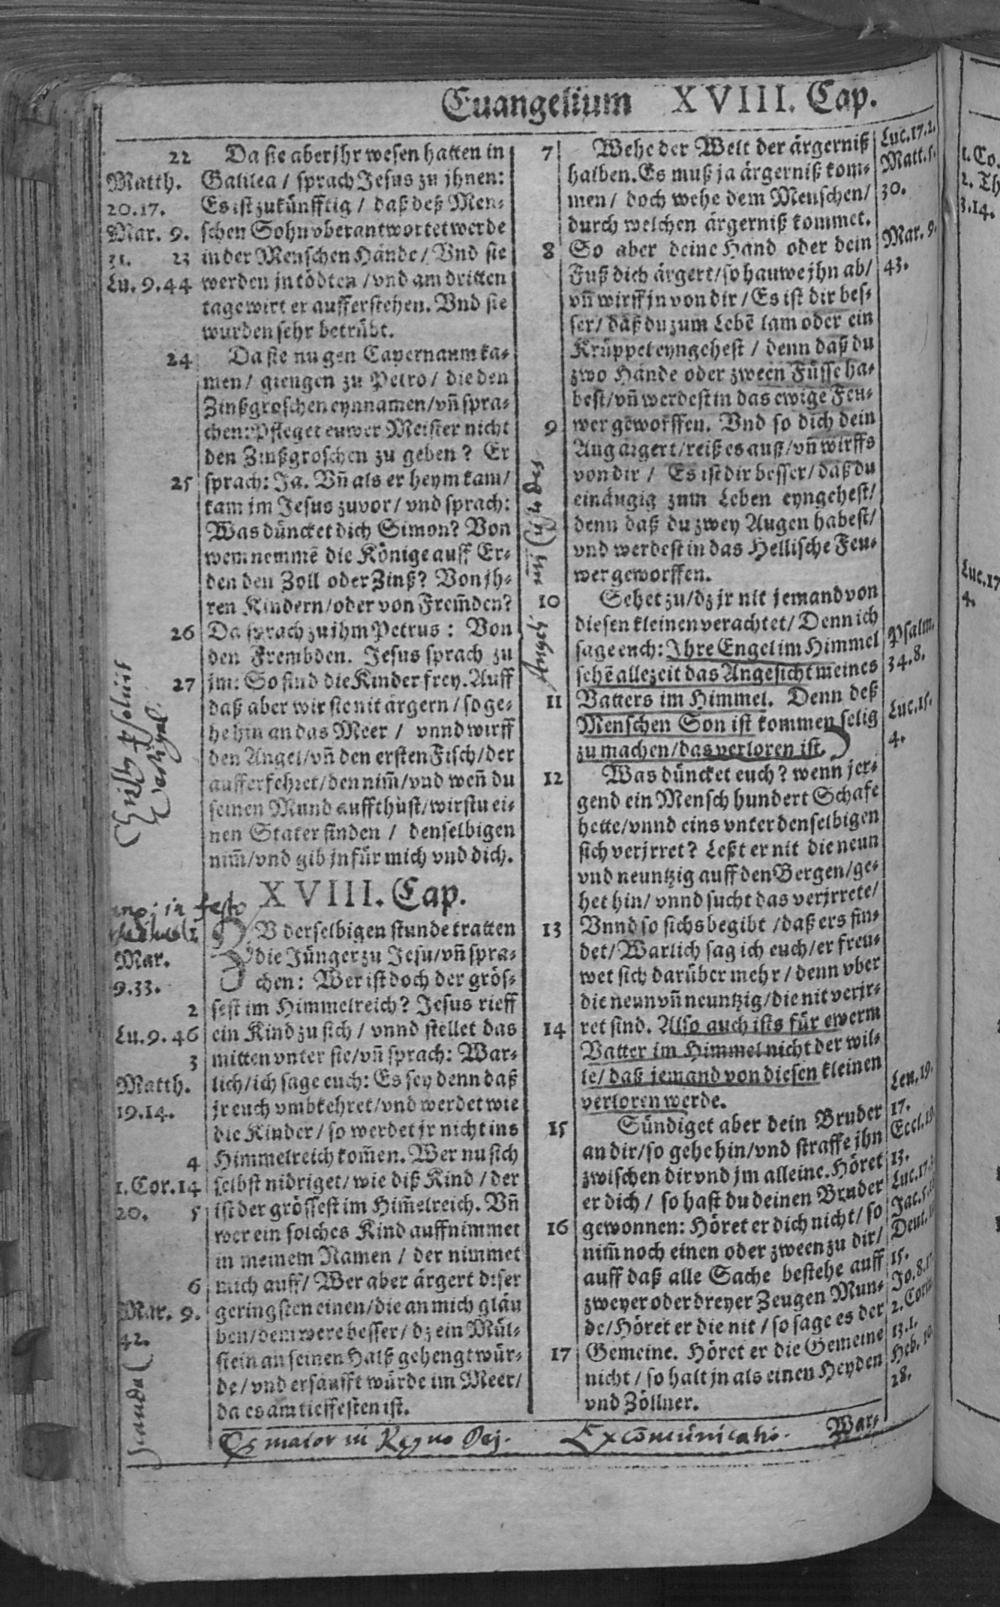 Euangelium XVIII. Cap.
22 Da sie aber jhr wesen hatten in
Matth. Galilea / sprach Jesus zu jhnen:
20.17. Es ist zukünfftig / daß deß Men-
Mar. 9. schen Sohn vberantwortet werde
31. 23 in der Menschen Hände / Vnd sie
Lu. 9.44 werden jn tödten / vnd am dritten
tage wirt er aufferstehen. Vnd sie
wurden sehr betrübt.
24 Da sie nu gen Capernaum ka-
men / giengen zu Petro / die den
Zinßgroschen eynnamen / vñ spra-
chen: Pfleget euwer Meister nicht
den Zinßgroschen zu geben? Er
25 sprach: Ja. Vñ als er heym kam /
kam jm Jesus zuvor / vnd sprach:
Was düncket dich Simon? Von
wem nemmē die Könige auff Er-
den den Zoll oder Zinß? Von jh-
ren Kindern / oder von Frem̄den?
26 Da sprach zu jhm Petrus: Von
den Frembden. Jesus sprach zu
27 jm: So sind die Kinder frey. Auff
daß aber wir sie nit ärgern / so ge-
he hin an das Meer / vnnd wirff
den Angel / vñ den ersten Fisch / der
aufferfehret / den nim̄ / vnd weñ du
seinen Mund auffthust / wirstu ei-
nen Stater finden / denselbigen
nim̄ / vnd gib jn für mich vnd dich.
XVIII. Cap.
ZV derselbigen stunde tratten
Mar. die Jünger zu Jesu / vñ spra-
9.33. chen: Wer ist doch der grös-
2 sest im Himmelreich? Jesus rieff
Lu. 9.46 ein Kind zu sich / vnnd stellet das
3 mitten vnter sie / vñ sprach: War-
Matth. lich / ich sage euch: Es sey denn daß
19.14. jr euch vmbkehret / vnd werdet wie
die Kinder / so werdet jr nicht ins
4 Himmelreich kom̄en. Wer nu sich
1. Cor. 14 selbst nidriget / wie diß Kind / der
20. 5 ist der grössest im Him̄elreich. Vñ
wer ein solches Kind auffnimmet
in meinem Namen / der nimmet
6 mich auff / Wer aber ärgert diser
Mar. 9. geringsten einen / die an mich gläu
42. ben / dem were besser / dz ein Mül-
stein an seinen Halß gehengt wür-
de / vnd ersäufft würde im Meer /
da es am tieffesten ist.
7 Wehe der Welt der ärgerniß Luc. 17.1.
halben. Es muß ja ärgerniß kom- Matt. 5.
men / doch wehe dem Menschen / 30.
durch welchen ärgerniß kommet.
8 So aber deine Hand oder dein Mar. 9.
Fuß dich ärgert / so hauwe jhn ab / 43.
vñ wirff jn von dir / Es ist dir bes-
ser / daß du zum Lebē lam oder ein
Krüppel eyngehest / denn daß du
zwo Hände oder zween Füsse ha-
best / vñ werdest in das ewige Feu-
9 wer geworffen. Vnd so dich dein
Aug ärgert / reiß es auß / vñ wirffs
von dir / Es ist dir besser / daß du
einäugig zum Leben eyngehest /
denn daß du zwey Augen habest /
vnd werdest in das Hellische Feu-
wer geworffen.
10 Sehet zu / dz jr nit jemand von
diesen kleinen verachtet / Denn ich
sage euch: Ihre Engel im Himmel Psalm.
sehē allezeit das Angesicht meines 34.8.
11 Vatters im Himmel. Denn deß
Menschen Son ist kommen selig Luc. 15.
zu machen / das verloren ist. 4.
12 Was düncket euch? wenn jer-
gend ein Mensch hundert Schafe
hette / vnnd eins vnter denselbigen
sich verjrret? Leßt er nit die neun
vnd neuntzig auff den Bergen / ge-
het hin / vnnd sucht das verjrrete /
13 Vnnd so sichs begibt / daß ers fin-
det / Warlich sag ich euch / er freu-
wet sich darüber mehr / denn vber
die neun vñ neuntzig / die nit verjr-
14 ret sind. Also auch ists für ewerm
Vatter im Himmel nicht der wil-
le / daß jemand von diesen kleinen
verloren werde. Leu. 19.
15 Sündiget aber dein Bruder 17.
an dir / so gehe hin / vnd straffe jhn Eccl. 19
zwischen dir vnd jm alleine. Höret 13.
er dich / so hast du deinen Bruder Luc. 17.
16 gewonnen: Höret er dich nicht / so Jac. 5.
nim̄ noch einen oder zween zu dir / Deut.
auff daß alle Sache bestehe auff 15.
zweyer oder dreyer Zeugen Mun- Jo. 8.
de / Höret er die nit / so sage es der 2. Cor.
17 Gemeine. Höret er die Gemeine 13.1.
nicht / so halt jn als einen Heyden Heb. 10.
vnd Zöllner. 28.
War-
maior in Regno Dej. Excōmunicatio.